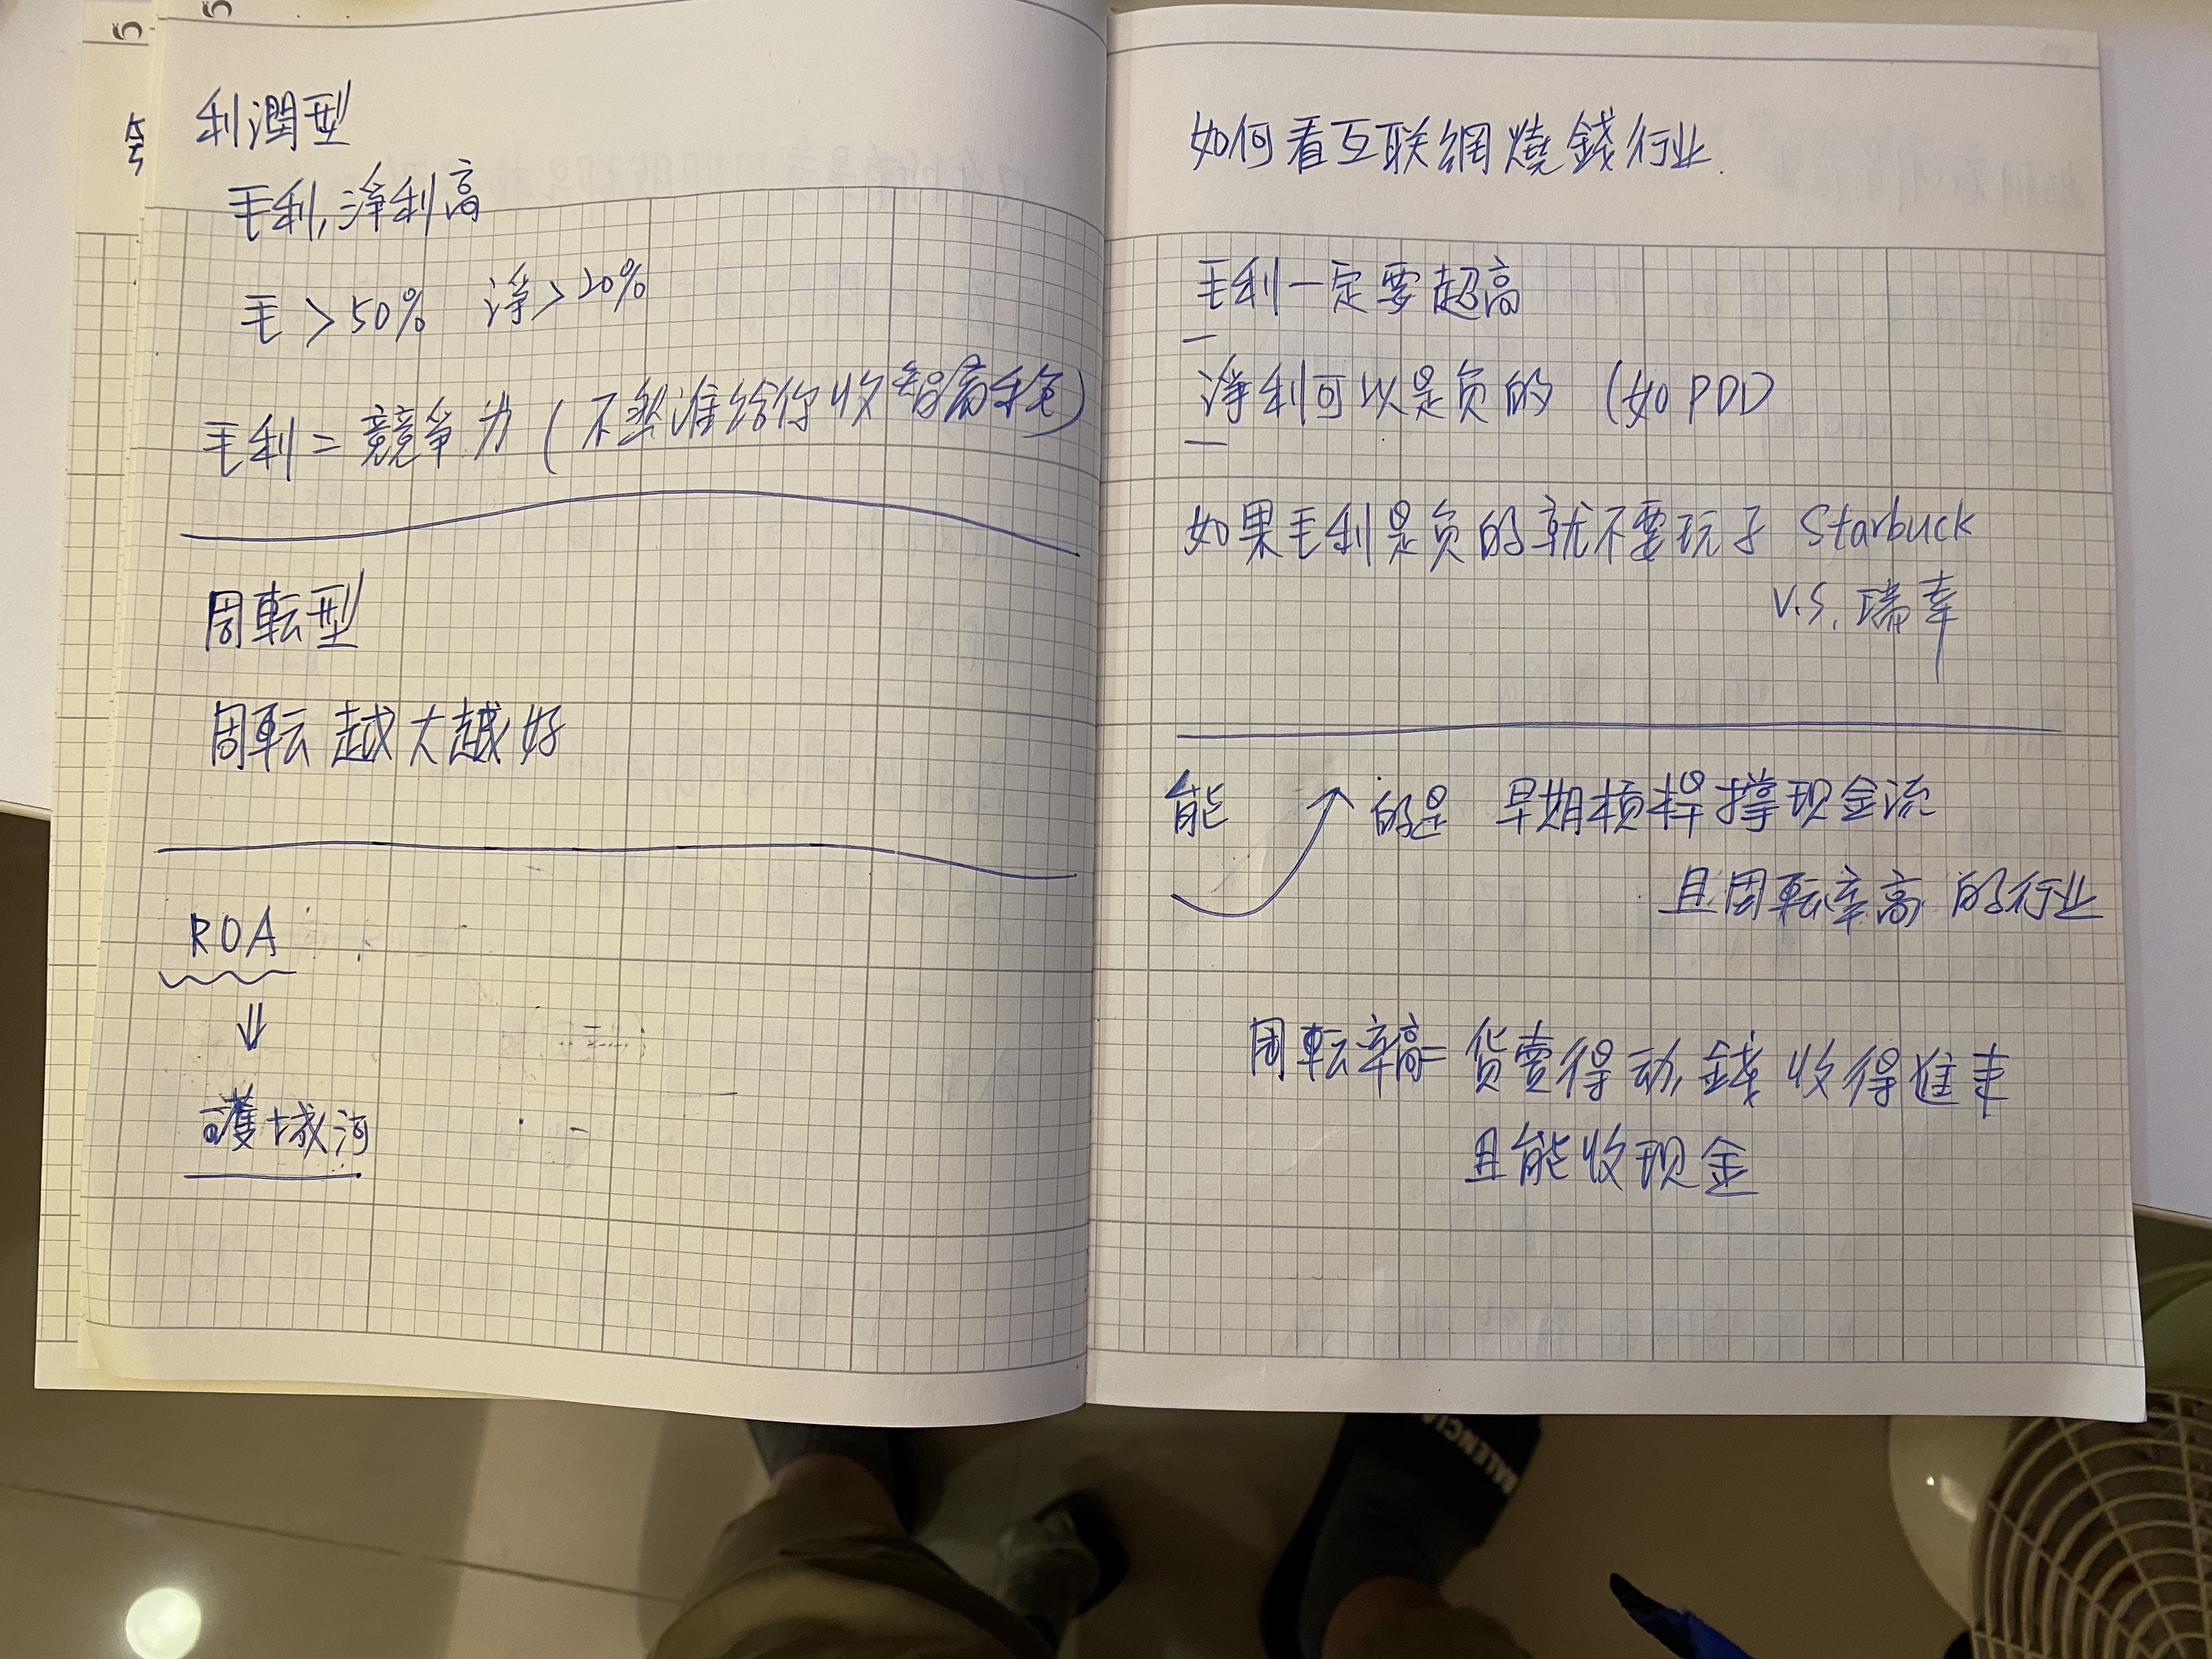 利潤型
毛利,淨利高
毛 > 50% 淨 > 20%
毛利 = 競爭力 (不然誰給你收智商稅)
周転型
周転越大越好
ROA
⇓
護城河
如何看互联網燒錢行业.
毛利一定要超高
淨利可以是负的 (如PDD
如果毛利是负的就不要玩了 Starbuck
V.S. 瑞幸
能 的是 早期槓桿撐现金流
且周転率高的行业
周転率高= 货賣得动,錢收得進来
且能收现金
5
5
BALENCIA